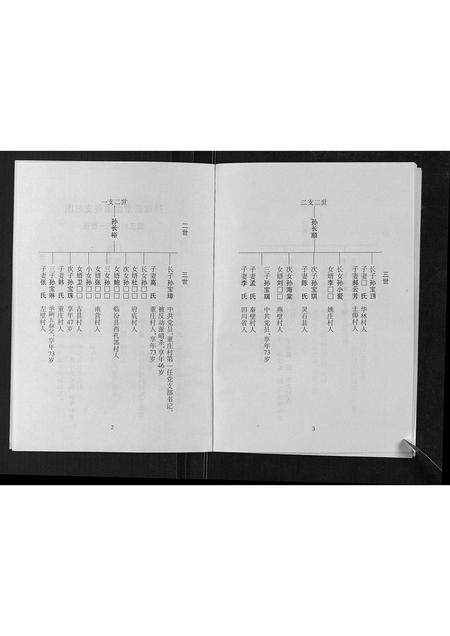 二支二世
孙长顺
三世
长子孙宝
子妻□ 氏 华林村人
子妻郝云芳 土师村人
长女孙小爱
女婿李□□ 姚庄村
次子孙宝琪
子妻陈 氏 灵石县人
次女孙海棠
女婿刘□□ 燕壁村人
三子孙宝瑞 中共党员,享年73岁
子妻孟 氏 秦壁村人
子妻李 氏 四川省人
3
一支二世
二世
孙长裕
三世
长子孙宝璋 中共党员、董庄村第一任党支部书记,
被反动派暗杀,享年46岁
子妻高 氏 董庄村人,享年73岁
长女孙□□
女婿杜□□ 府底村人
次女孙□□
女婿鲍□□ 临汾县西孔郭村人
三女孙□□
女婿张□□ 南营村人
小女孙□□
女婿卫□□ 古县村人
次子孙宝珠 享年47岁
子妻韩 氏 董庄村人
三子孙宝琳 承嗣五叔父,享年73岁
子妻张 氏 左壁村人
2